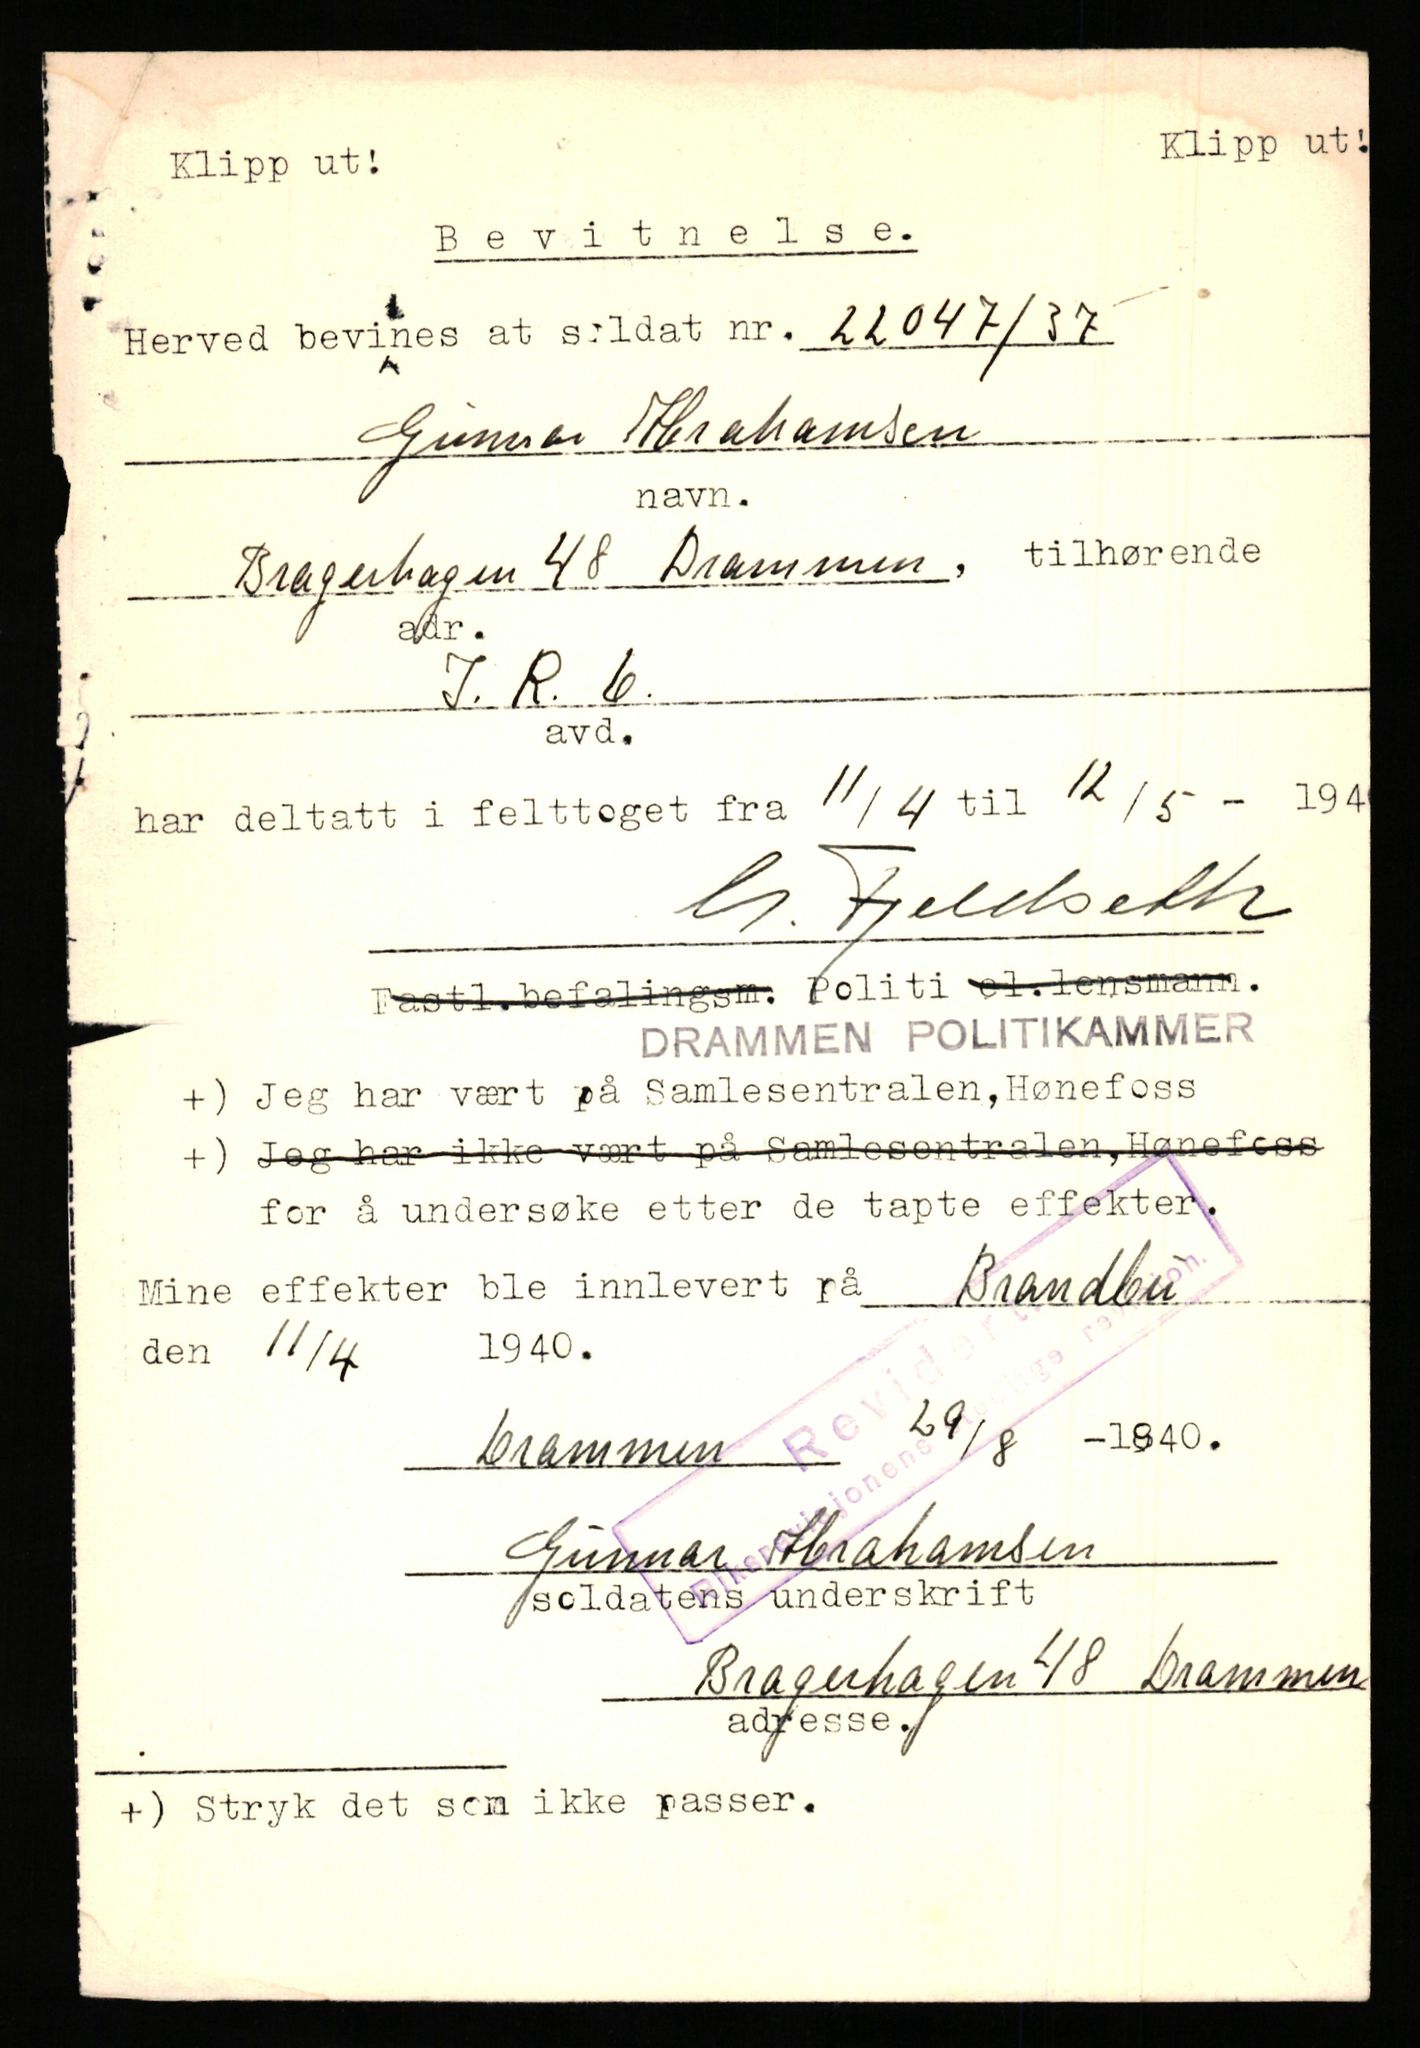 Klipp ut! Klipp ut!
Bevitnelse.
Herved bevitnes at soldat nr. 22047/37
Gunnar Abrahamsen
navn.
Bragerhagen 48 Drammen, tilhørende
adr.
I. R. 6.
avd.
har deltatt i felttoget fra 11/4 til 12/5 - 194
Fjeldseth
Fastl.befalingsm. Politi el.lensmann.
DRAMMEN POLITIKAMMER
+) Jeg har vært på Samlesentralen,Hønefoss
+) Jeg har ikke vært på Samlesentralen,Hønefoss
for å undersøke etter de tapte effekter.
Mine effekter ble innlevert på Brandbu
den 11/4 1940.
Drammen 29/8 -1940.
Gunnar Abrahamsen
soldatens underskrift
Bragerhagen 48 Drammen
adresse.
+) Stryk det som ikke passer.
Revidert
Riksrevisjonens revisjon.